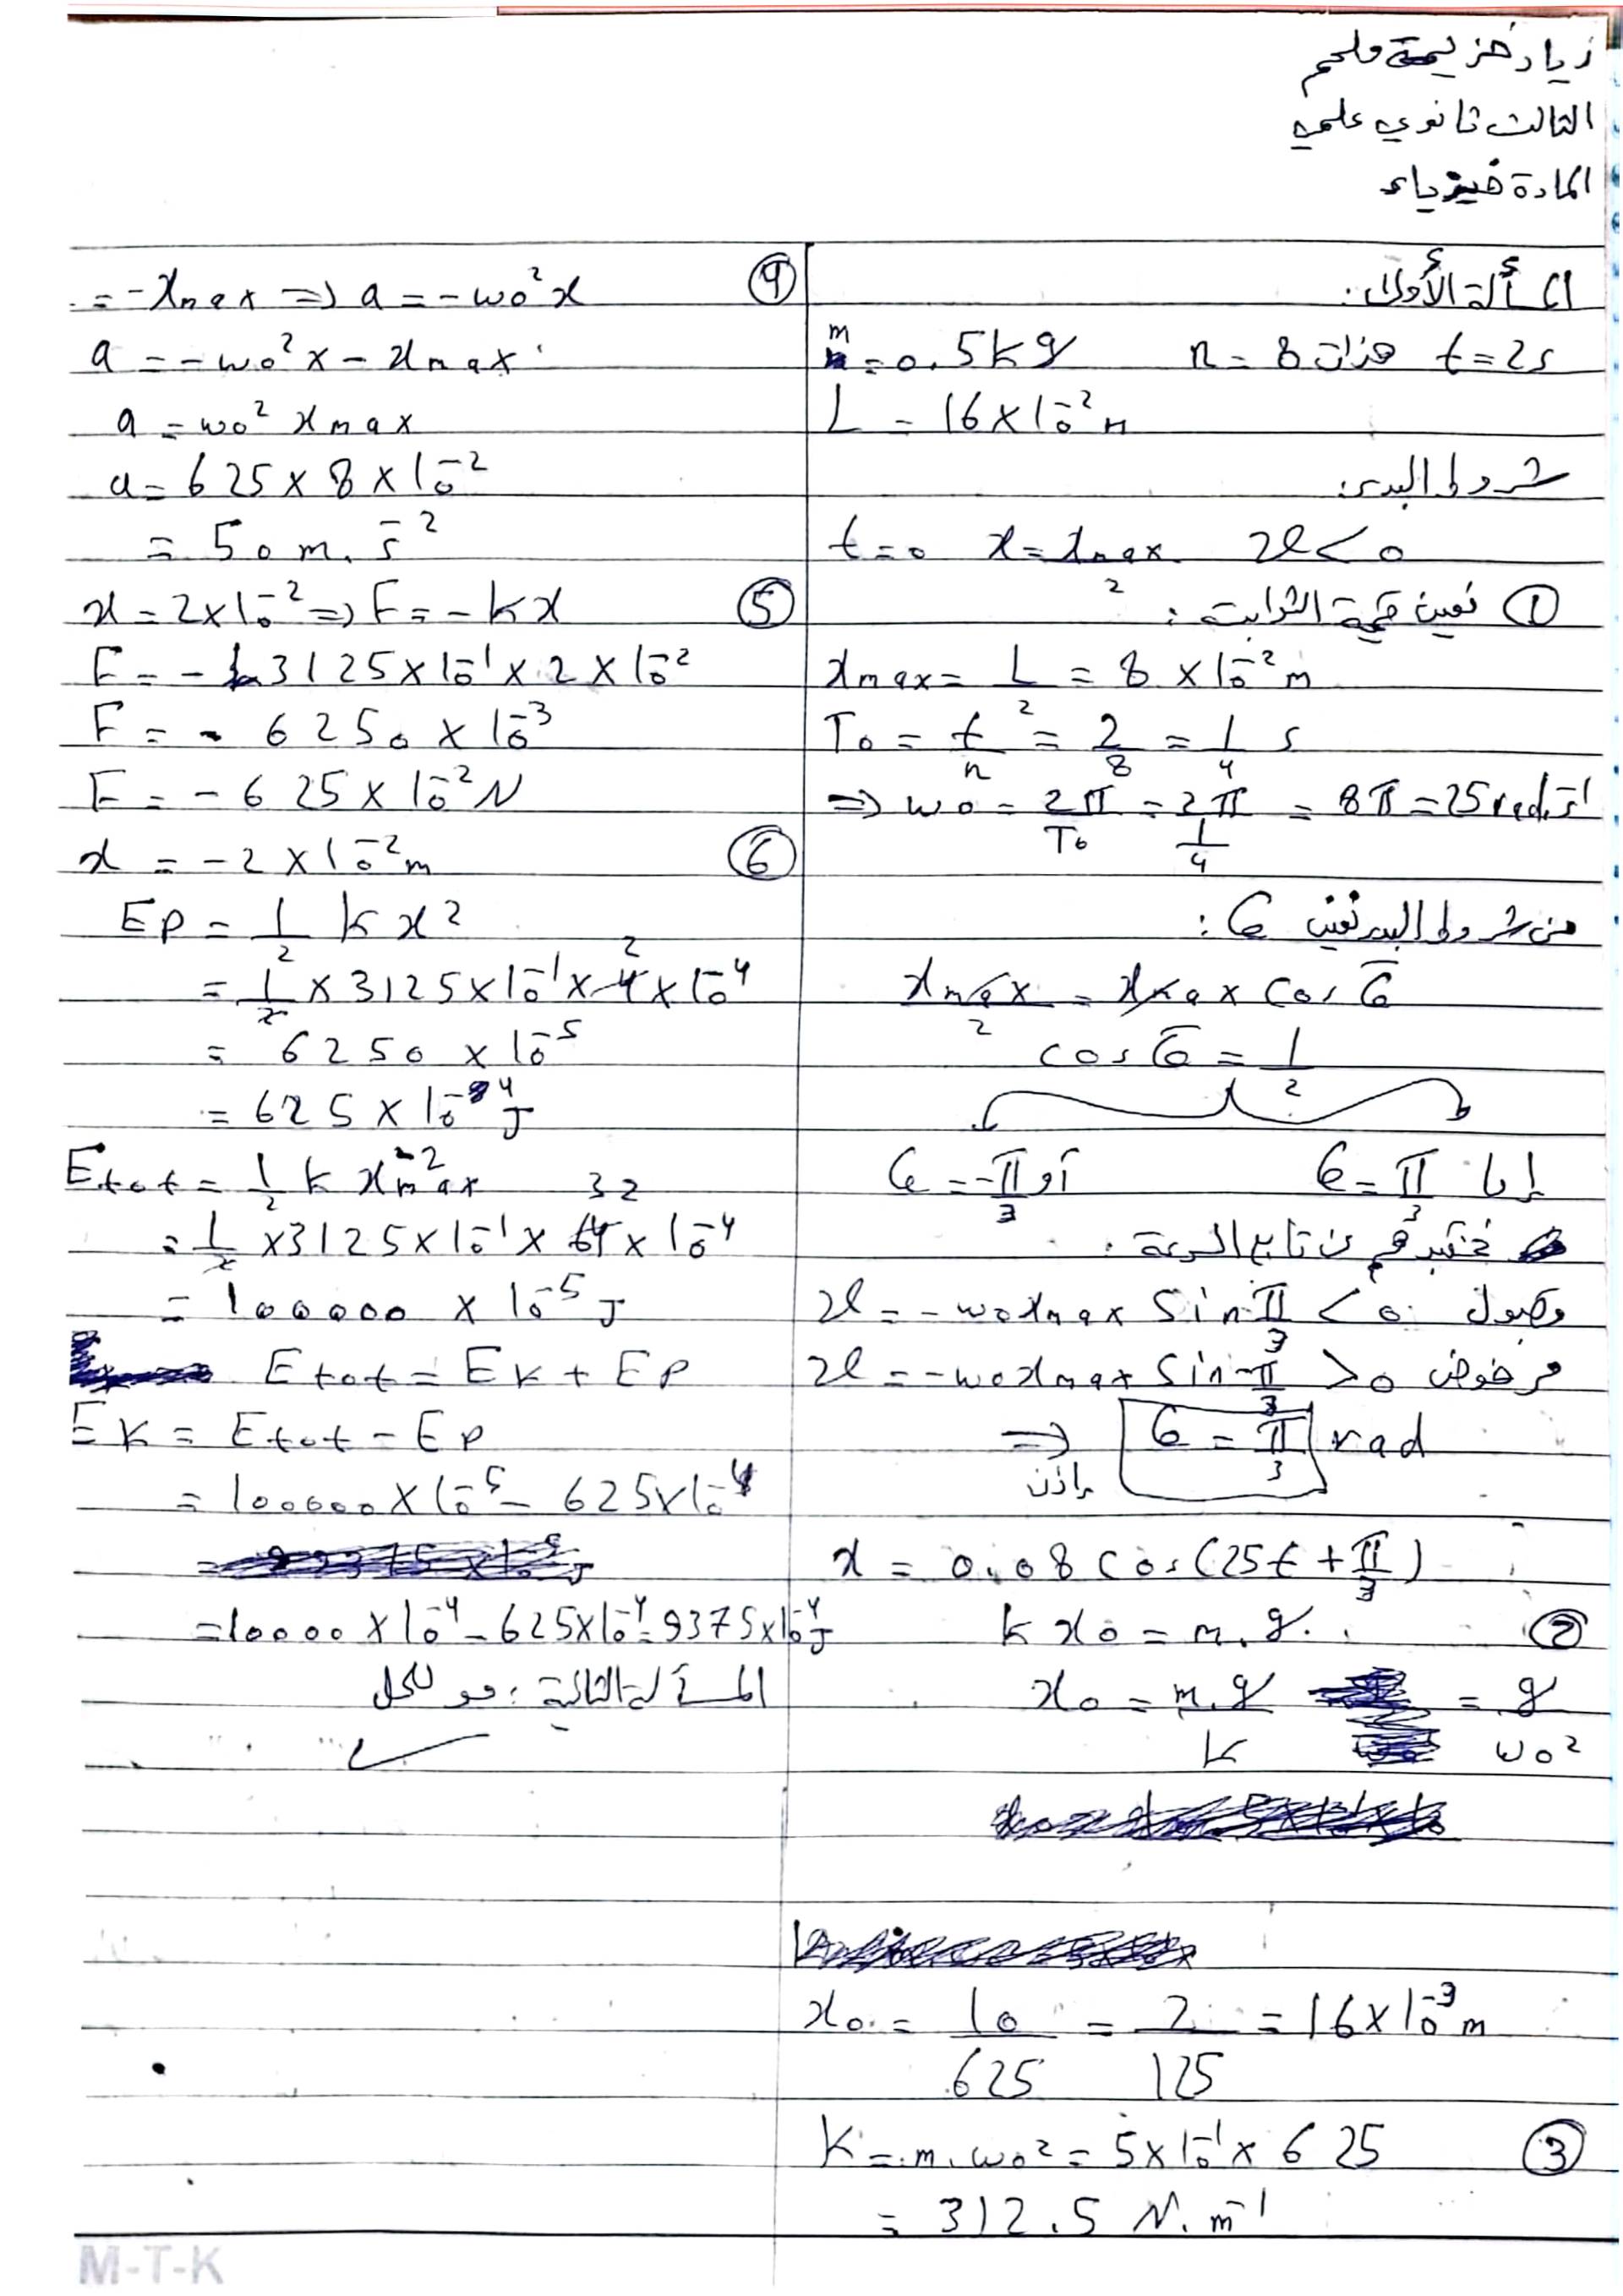 زياد خزيمة ملحم
الثالث ثانوي علمي
المادة فيزياء
المسألة الأولى:
m = 0.5 kg n = 8 هزات t = 2s
L = 16 × 10⁻² m
شروط البدء:
t = 0 x = xmax/2 v < 0
① نعين قيمة الثوابت:
xmax = L/2 = 8 × 10⁻² m
T₀ = t/n = 2/8 = 1/4 s
⇒ ω₀ = 2π/T₀ = 2π/(1/4) = 8π = 25 rad.s⁻¹
من شروط البدء نعين φ:
xmax/2 = xmax cos φ̄
cos φ̄ = 1/2
إما φ = π/3 أو φ = -π/3
نختبر في تابع السرعة:
v = -ω₀xmax sin π/3 < 0 مقبول
v = -ω₀xmax sin -π/3 > 0 مرفوض
إذن ⇒ φ = π/3 rad
x = 0.08 cos(25t + π/3)
② k x₀ = m.g
x₀ = m.g/k = g/ω₀²
x₀ = 10/625 = 2/125 = 16 × 10⁻³ m
③ K = m.ω₀² = 5 × 10⁻¹ × 625
= 312.5 N.m⁻¹
④ = -xmax ⇒ a = -ω₀²x
a = -ω₀² x - xmax
a = ω₀² xmax
a = 625 × 8 × 10⁻²
= 50 m.s⁻²
⑤ x = 2 × 10⁻² ⇒ F = -kx
F = - 3125 × 10⁻¹ × 2 × 10⁻²
F = - 6250 × 10⁻³
F = - 625 × 10⁻² N
⑥ x = -2 × 10⁻² m
EP = 1/2 k x²
= 1/2 × 3125 × 10⁻¹ × 4 2 × 10⁻⁴
= 6250 × 10⁻⁵
= 625 × 10⁻⁴ J
Etot = 1/2 k xmax²
= 1/2 × 3125 × 10⁻¹ × 64 32 × 10⁻⁴
= 100000 × 10⁻⁵ J
Etot = EK + EP
EK = Etot - EP
= 100000 × 10⁻⁵ - 625 × 10⁻⁴
= 10000 × 10⁻⁴ - 625 × 10⁻⁴ = 9375 × 10⁻⁴ J
المسألة الثانية:
M-T-K